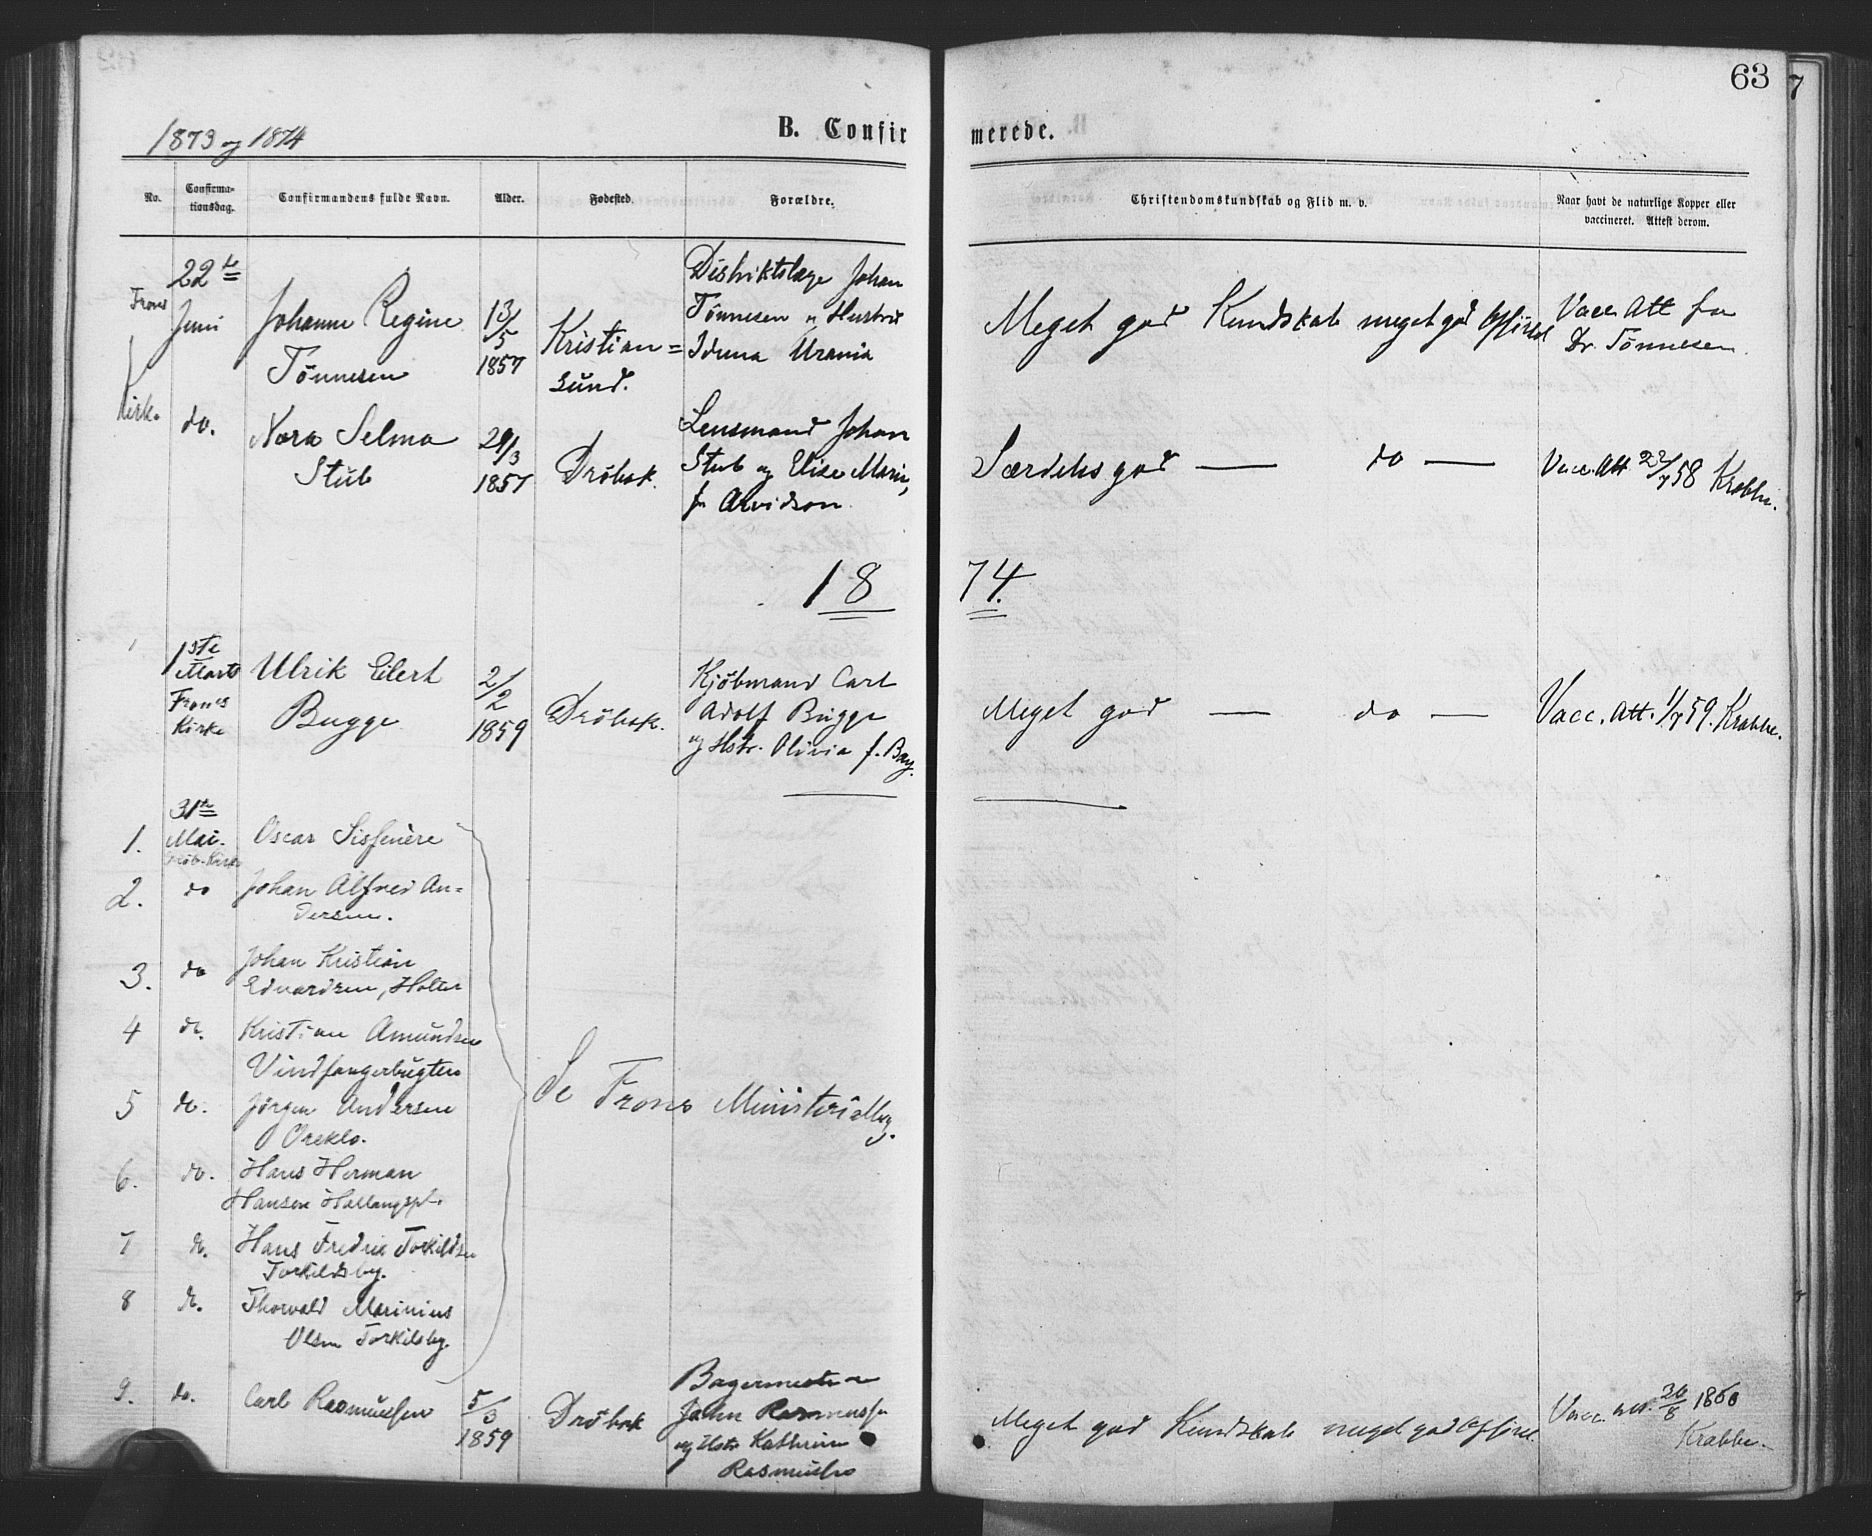 63
7
1873 og 1874
B. Confir merede.
No.
Confirma-
tionsdag.
Confirmandens fulde Navn.
Alder.
Fødested.
Forældre.
Christendomskundskab og Flid m. v.
Naar havt de naturlige Kopper eller
vaccineret. Attest derom.
Frons
Kirk.
22de
Juni
Johanne Regine
Tönnesen
13/5
1857
Kristian=
sund.
Distriktslæge Johan
Tönnesen
Iduna Urania
Meget god Kundskab meget god Opførsel
Vacc. Att fra
Dr. Tönnesen
do.
Nora Selma
Stub
29/3
1857
Drøbak.
Lensmand Johan
Stub og Elise Marie,
f. Arvidson.
Særdeles god — do —
Vacc. Att 23/7 58 Krabbe.
18 74.
1ste
Marts
Frones
Kirke
Ulrik Eilert
Bugge
2/2
1859
Drøbak.
Kjöbmand Carl
Adolf Bugge
og Hstr. Olivia f. Bay.
Meget god — do —
Vacc. Att. 1/7 59. Krabbe.
1.
31te
Mai.
Drøb. Kirke
Oscar Sissenère
2.
do
Johan Alfred An=
dersen.
3.
do
Johan Kristian
Edvardsen, Holter
4
do.
Kristian Amundsen
Vindfangerbugten
5
do.
Jörgen Andersen
Oreklo.
Se Frons Ministerialbog.
6.
do.
Hans Herman
Hansen Hallangspl.
7
do.
Hans Fredrik Torkildsen
Torkildsby.
8
do.
Thorvald Marinius
Olsen Torkilsby.
9.
do.
Carl Rasmussen
5/3
1859
Drøbak
Bagermester
John Rasmussen
og Hstr Kathrine
Rasmussen
Meget god Kundskab meget god Opførsel.
Vacc. att. 30/8 1860
Krabbe.